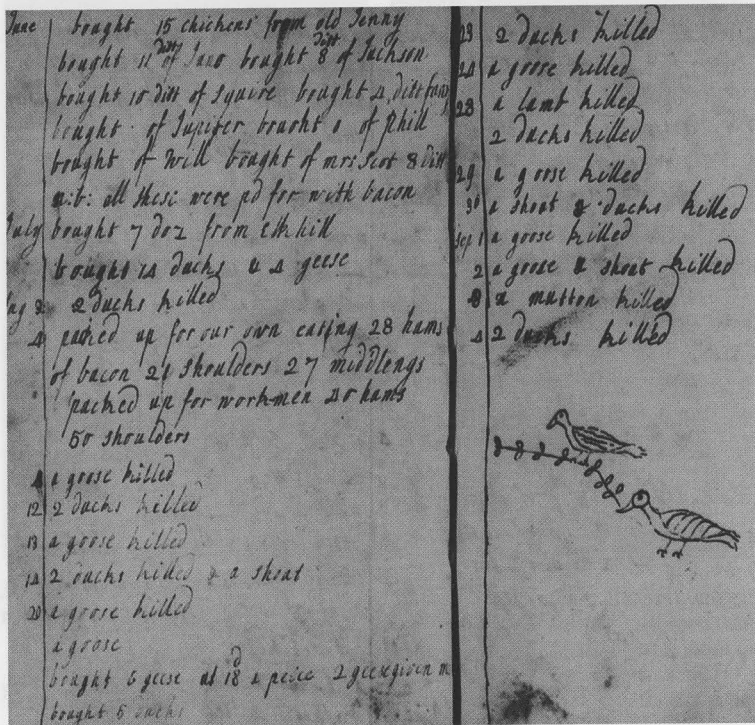 June bought 15 chickens from old Jenny
bought 11 ditt of Juno bought 8 ditt of Jackson
bought 10 ditt of Squire bought 4 ditt from
bought of Jupiter bought of Phill
bought of Will bought of mrs Scot 8 Ditt
n:b: all these were pd for with bacon
July bought 7 doz from Elkhill
bought 14 ducks & 4 geese
2 ducks killed
4 packed up for our own eating 28 hams
of bacon 21 shoulders 27 middlengs
packed up for workmen 40 hams
50 shoulders
4 a goose killed
12 2 ducks killed
13 a goose killed
14 2 ducks killed & a shoat
20 a goose killed
a goose
bought 5 geese at 18d a peice 2 geese given
bought 5 ducks
23 2 ducks killed
24 a goose killed
28 a lamb killed
2 ducks killed
29 a goose killed
30 a shoat & ducks killed
Sep 1 a goose killed
2 a goose & shoat killed
a mutton killed
4 2 ducks killed